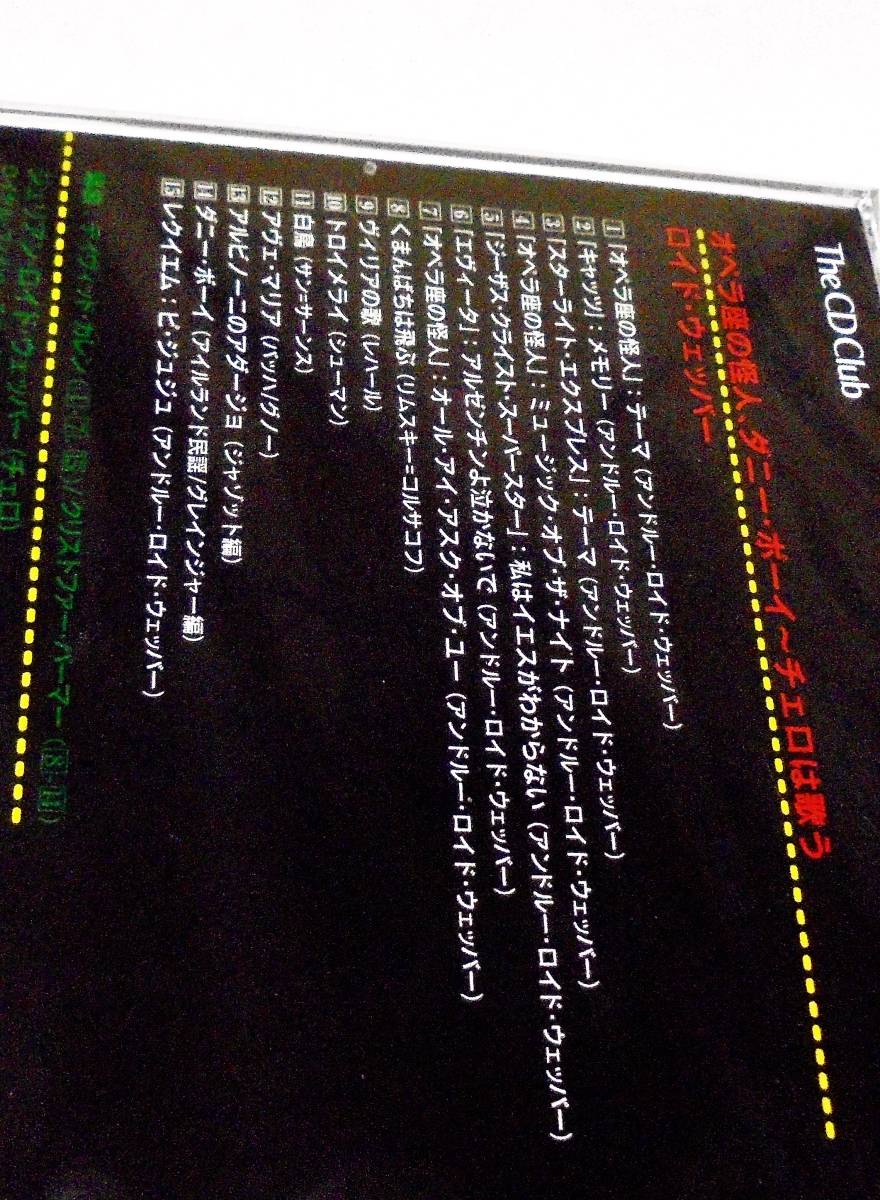 The CD Club
オペラ座の怪人、ダニー・ボーイ～チェロは歌う
ロイド・ウェッバー
1 「オペラ座の怪人」：テーマ（アンドルー・ロイド・ウェッバー）
2 「キャッツ」：メモリー（アンドルー・ロイド・ウェッバー）
3 「スターライト・エクスプレス」：テーマ（アンドルー・ロイド・ウェッバー）
4 「オペラ座の怪人」：ミュージック・オブ・ザ・ナイト（アンドルー・ロイド・ウェッバー）
5 「ジーザス・クライスト・スーパースター」：私はイエスがわからない（アンドルー・ロイド・ウェッバー）
6 「エヴィータ」：アルゼンチンよ泣かないで（アンドルー・ロイド・ウェッバー）
7 「オペラ座の怪人」：オール・アイ・アスク・オブ・ユー（アンドルー・ロイド・ウェッバー）
8 くまんばちは飛ぶ（リムスキー=コルサコフ）
9 ヴィリアの歌（レハール）
10 トロイメライ（シューマン）
11 白鳥（サン=サーンス）
12 アヴェ・マリア（バッハ/グノー）
13 アルビノーニのアダージョ（ジャゾット編）
14 ダニー・ボーイ（アイルランド民謡/グレインジャー編）
15 レクイエム：ピエ・ジェジュ（アンドルー・ロイド・ウェッバー）
編曲 デイヴィッド・カレン（1-7, 15）／クリストファー・パーマー（8-11）
ジュリアン・ロイド・ウェッバー（チェロ）